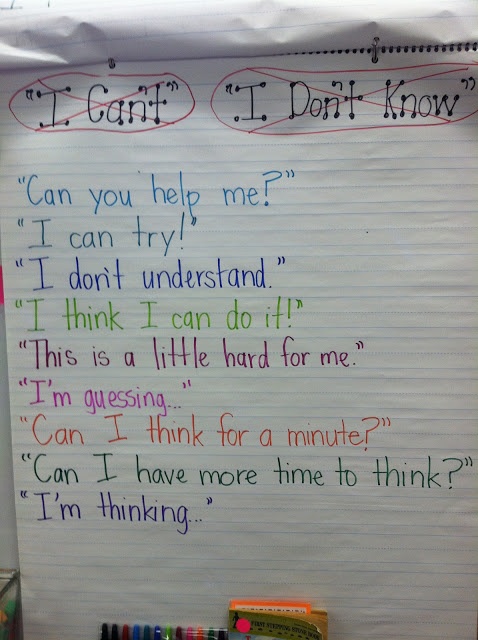 "I Can't" "I Don't Know"
"Can you help me?"
"I can try!"
"I don't understand."
"I think I can do it!"
"This is a little hard for me."
"I'm guessing..."
"Can I think for a minute?"
"Can I have more time to think?"
"I'm thinking..."